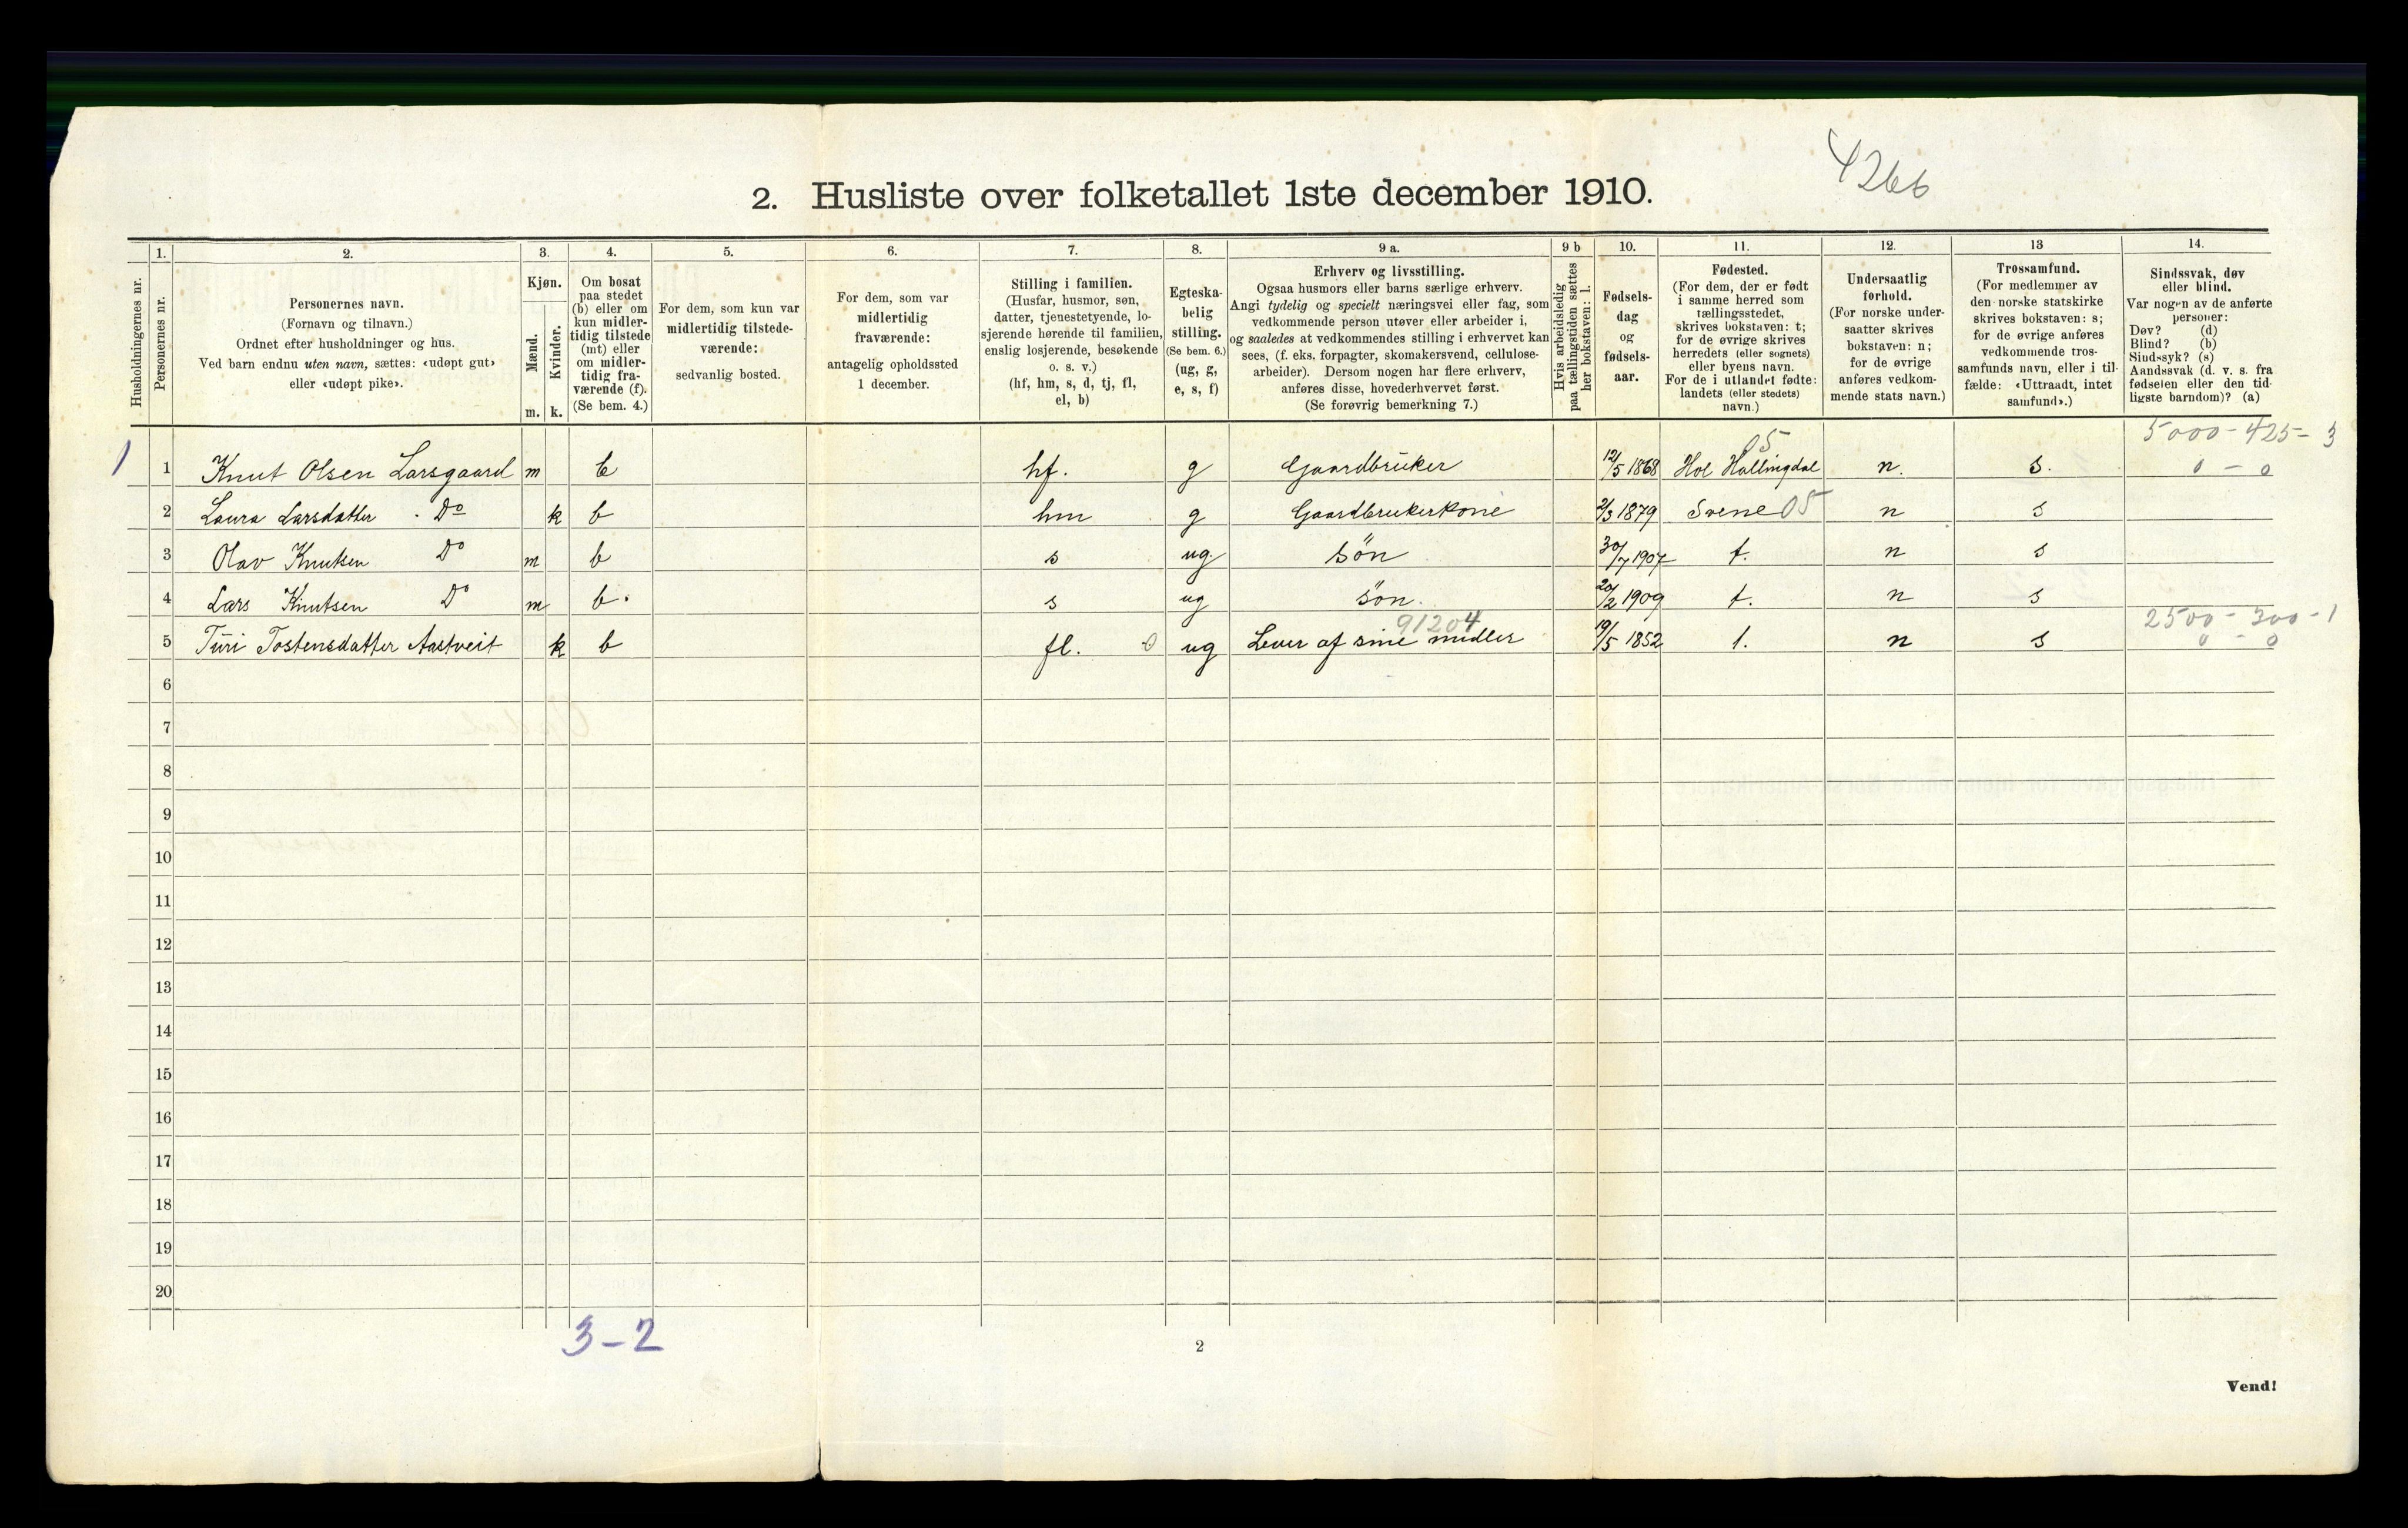 4266
2. Husliste over folketallet 1ste december 1910.
Husholdningernes nr.
1.
Personernes nr.
2.
Personernes navn.
(Fornavn og tilnavn.)
Ordnet efter husholdninger og hus.
Ved barn endnu uten navn, sættes: «udøpt gut»
eller «udøpt pike».
3.
Kjøn.
Mænd.
Kvinder.
m. k.
4.
Om bosat
paa stedet
(b) eller om
kun midler-
tidig tilstede
(mt) eller
om midler-
tidig fra-
værende (f).
(Se bem. 4.)
5.
For dem, som kun var
midlertidig tilstede-
værende:
sedvanlig bosted.
6.
For dem, som var
midlertidig
fraværende:
antagelig opholdssted
1 december.
7.
Stilling i familien.
(Husfar, husmor, søn,
datter, tjenestetyende, lo-
sjerende hørende til familien,
enslig losjerende, besøkende
o. s. v.)
(hf, hm, s, d, tj, fl,
el, b)
8.
Egteska-
belig
stilling.
(Se bem. 6.)
(ug, g,
e, s, f)
9 a.
Erhverv og livsstilling.
Ogsaa husmors eller barns særlige erhverv.
Angi tydelig og specielt næringsvei eller fag, som
vedkommende person utøver eller arbeider i,
og saaledes at vedkommendes stilling i erhvervet kan
sees, (f. eks. forpagter, skomakersvend, cellulose-
arbeider). Dersom nogen har flere erhverv,
anføres disse, hovederhvervet først.
(Se forøvrig bemerkning 7.)
9 b
Hvis arbeidsledig
paa tællingstiden sættes
her bokstaven: l.
10.
Fødsels-
dag
og
fødsels-
aar.
11.
Fødested.
(For dem, der er født
i samme herred som
tællingsstedet,
skrives bokstaven: t;
for de øvrige skrives
herredets (eller sognets)
eller byens navn.
For de i utlandet fødte:
landets (eller stedets)
navn.)
12.
Undersaatlig
forhold.
(For norske under-
saatter skrives
bokstaven: n;
for de øvrige
anføres vedkom-
mende stats navn.)
13
Trossamfund.
(For medlemmer av
den norske statskirke
skrives bokstaven: s;
for de øvrige anføres
vedkommende tros-
samfunds navn, eller i til-
fælde: «Uttraadt, intet
samfund».)
14.
Sindssvak, døv
eller blind.
Var nogen av de anførte
personer:
Døv? (d)
Blind? (b)
Sindssyk? (s)
Aandssvak (d. v. s. fra
fødselen eller den tid-
ligste barndom)? (a)
05 5000-425-3
1 1 Knut Olsen Larsgaard m b hf. g Gaardbruker 12/5 1868 Hol Hallingdal n. s. 0 - 0
2 Laura Larsdatter Do k b hm g Gaardbrukerkone 2/3 1879 Svene 05 n s
3 Olav Knutsen Do m b s ug. søn 30/7 1907 t. n s
4 Lars Knutsen Do m b. s ug søn. 20/2 1909 t. n s
91204 2500-300-1
5 Turi Tostensdatter Aastveit k b fl. 0 ug Lever af sine midler 19/5 1852 t. n s 0 - 0
6
7
8
9
10
11
12
13
14
15
16
17
18
19
20
3-2
2
Vend!